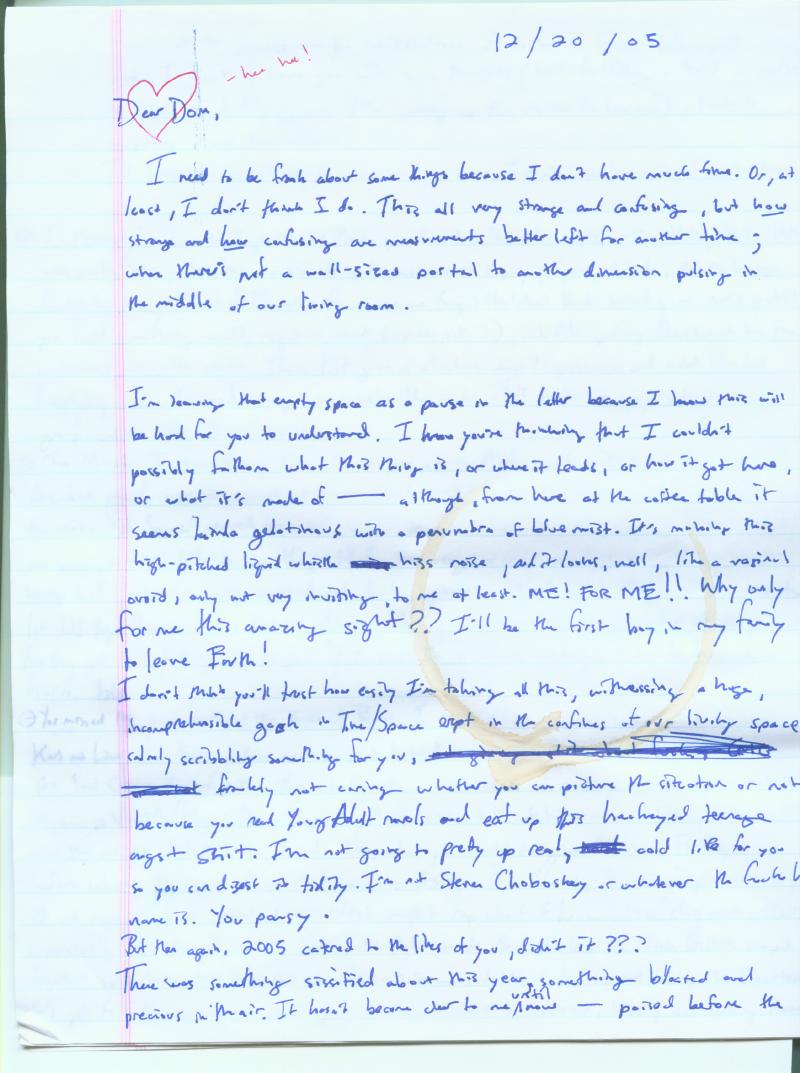 12/20/05
- hee hee!
Dear Dom,
I need to be frank about some things because I don't have much time. Or, at
least, I don't think I do. This all very strange and confusing, but how
strange and how confusing are measurements better left for another time;
when there's not a wall-sized portal to another dimension pulsing in
the middle of our living room.
I'm leaving that empty space as a pause in the letter because I know this will
be hard for you to understand. I know you're thinking that I couldn't
possibly fathom what this thing is, or where it leads, or how it got here,
or what it's made of — although, from here at the coffee table it
seems kinda gelatinous with a penumbra of blue mist. It's making this
high-pitched liquid whistle hiss noise, and it looks, well, like a vaginal
ovoid, only not very inviting, to me at least. ME! FOR ME!! Why only
for me this amazing sight?? I'll be the first boy in my family
to leave Earth!
I don't think you'll trust how easily I'm taking all this, witnessing a huge,
incomprehensible gash in Time/Space erupt in the confines of our living space
calmly scribbling something for you,
frankly not caring whether you can picture the situation or not
because you read Young Adult novels and eat up this hackneyed teenage
angst shit. I'm not going to pretty up really cold life for you
so you can digest it tidily. I'm not Steven Chobosky or whatever the fuck
name is. You pansy.
But then again, 2005 catered to the likes of you, didn't it???
There was something sissified about this year, something bloated and
precious in the air. It hasn't become clear to me until now — poised before the